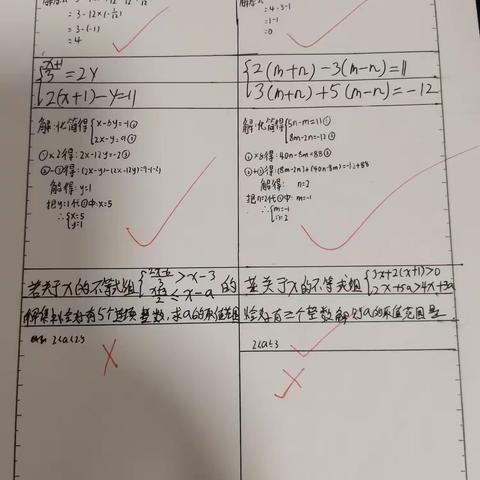 = 3 - 12×(-1/12)
= 3 - (-1)
= 4
= 4 - 3 - 1
= 1 - 1
= 0
{ (x+1)/3 = 2y
2(x+1) - y = 11
{ 2(m+n) - 3(m-n) = 11
3(m+n) + 5(m-n) = -12
解:化简得 { x-6y=-1①
2x-y=9②
①×2得: 2x-12y=-2③
解得: y=1
把y=1代①中: x=5
∴ { x=5
y=1
解:化简得 { 5n-m=11①
8m-2n=-12②
①×8得: 40n-8m=88③
②+③得: (8m-2n)+(40n-8m)=-12+88
解得: n=2
把n=2代①中: m=-1
∴ { m=-1
n=2
若关于x的不等式组 > x-3
≤ x-a 的
解集 恰好有5个 整数,求a的取值范围
若关于x的不等式组 { 3x+2(x+1)>0
2x+5a>4x+3a
恰好有三个整数解,则a的取值范围是
2<a≤3